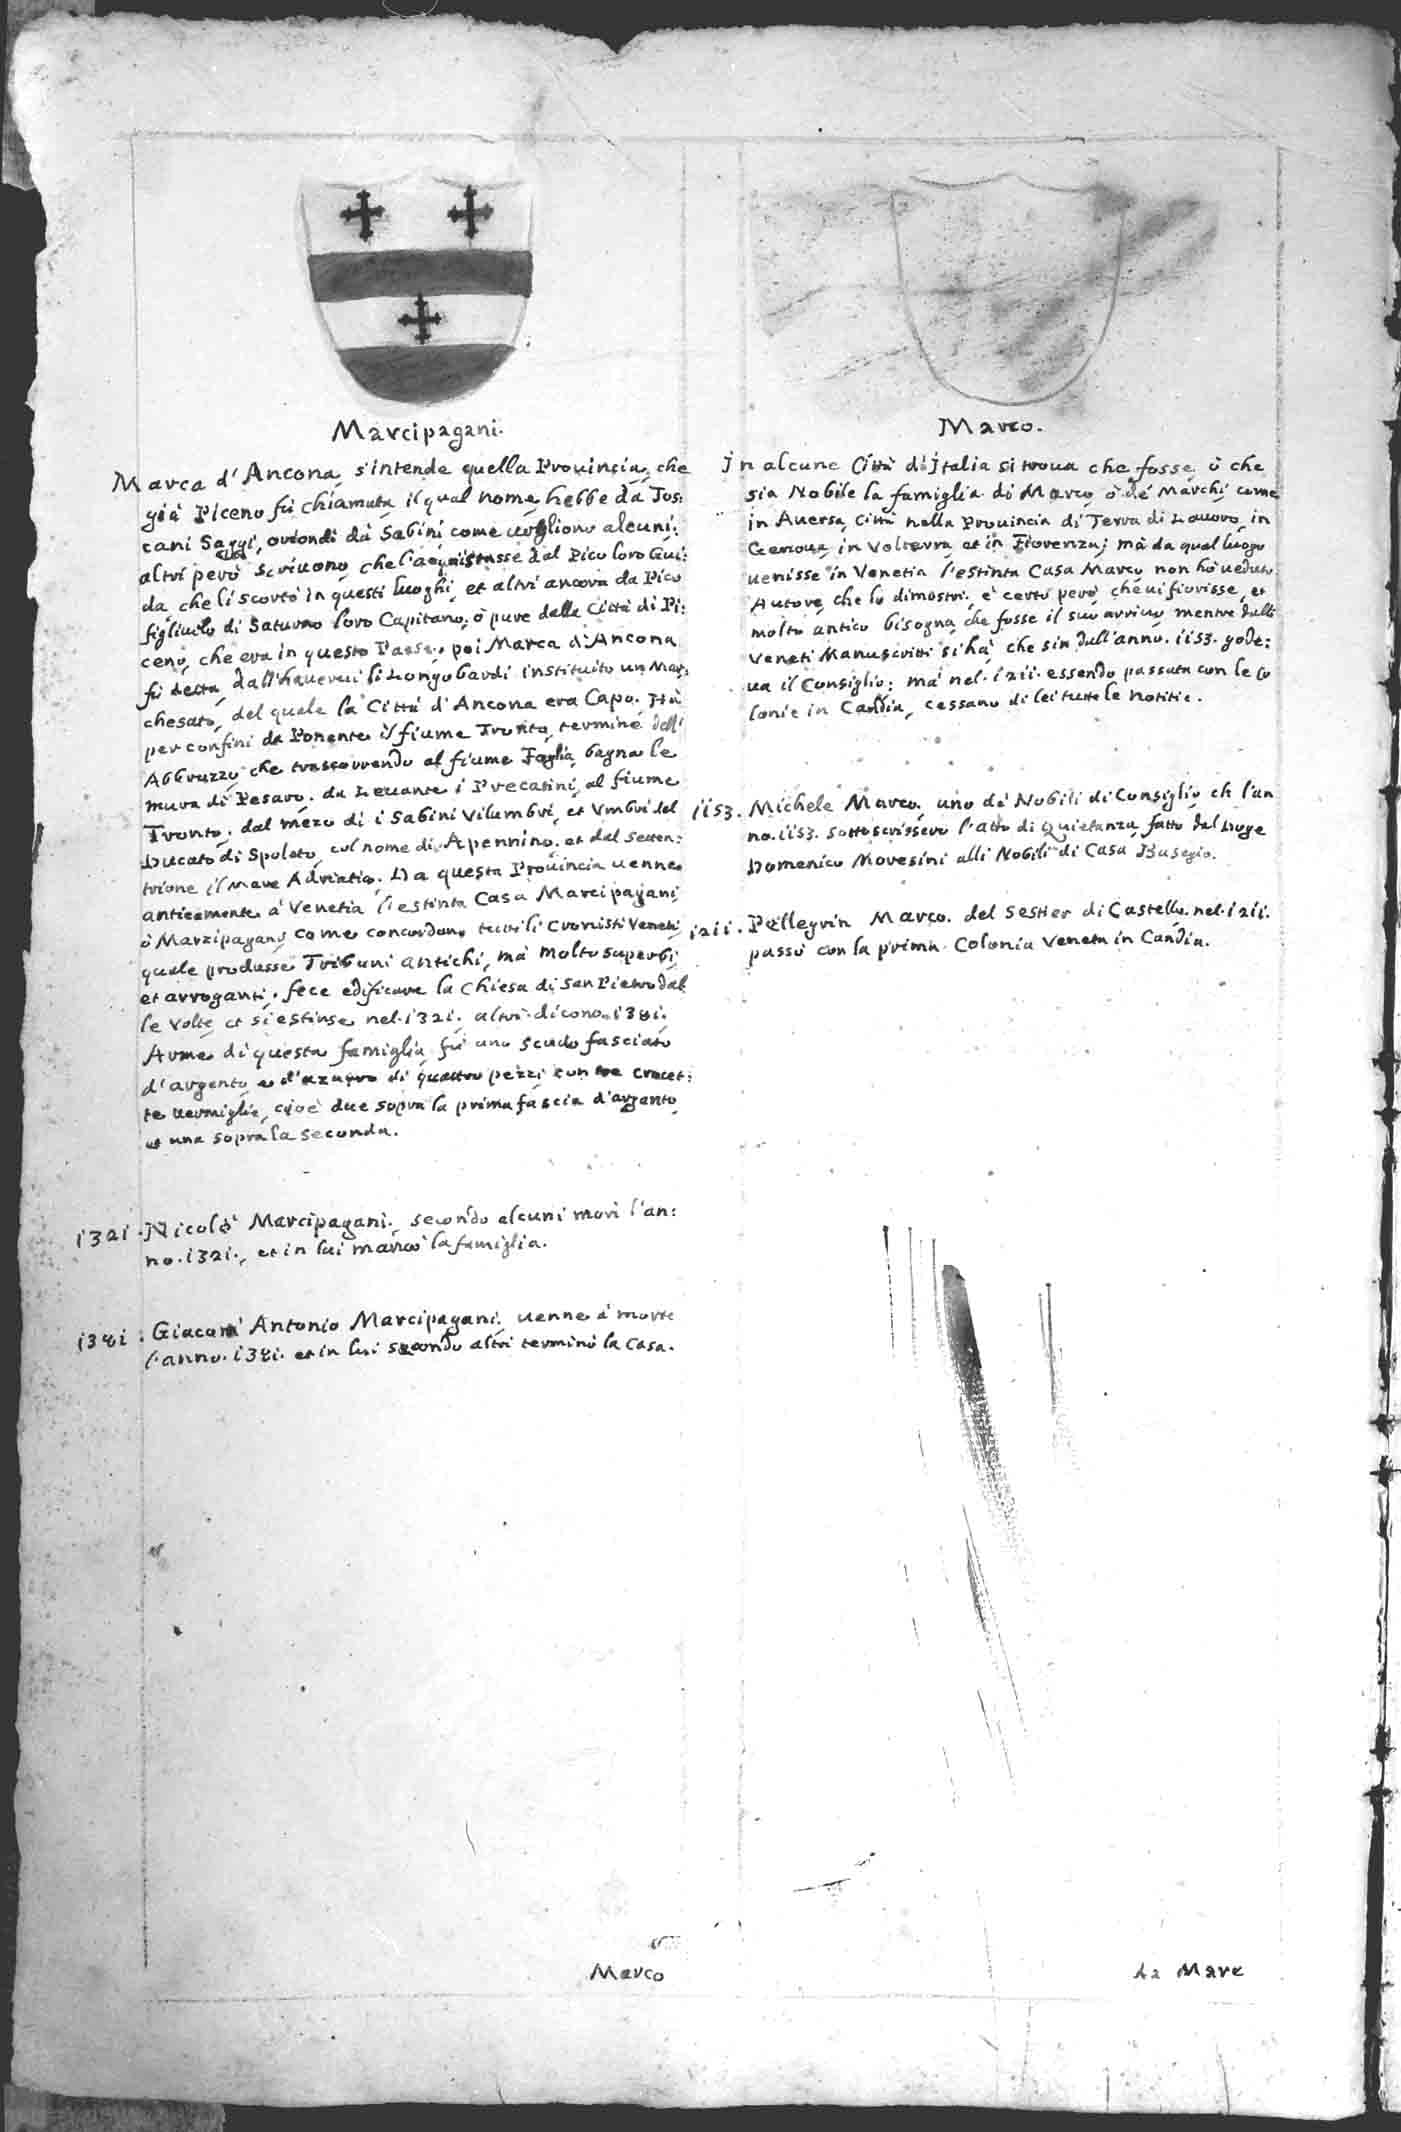 Marcipagani.
Marca d'Ancona, s'intende quella Prouincia, che
già Piceno fù chiamata il qual nome hebbe da Tos:
cani Saggi, oriondi dà Sabini come uogliono alcuni:
altri però scriuono, che l'acquistasse dal Pico loro Gui:
da che li scortò in questi luoghi, et altri ancora da Pico
figliuolo di Saturno loro Capitano, ò pure dalla Città di Pi:
ceno, che era in questo Paese, poi Marca d'Ancona
fù detta, dall'hauerui li Longobardi instituito un Mar:
chesato, del quale la Città d'Ancona era Capo. Hà
per confini da Ponente il fiume Tronto, termine dell'
Abbruzzo che trascorrendo al fiume Foglia, bagna le
mura di Pesaro. da Leuante i Precutini, al fiume
Tronto. dal mezo di i Sabini Vilumbri, et Vmbri del
Ducato di Spoleto, col nome di Apennino. et dal Setten:
trione il Mare Adriatico. Da questa Prouincia uenne
anticamente à Venetia l'estinta Casa Marcipagani,
ò Marzipagani come concordano tutti li Cronisti Veneti,
quale produsse Tribuni antichi, mà molto superbi,
et arroganti. fece edificare la Chiesa di San Pietro dal
le Volte, et si estinse nel.1321. altri dicono.1381.
Arma di questa famiglia fù uno scudo fasciato
d'argento e d'azurro di quattro pezzi con tre crocet:
te uermiglie, cioè due sopra la prima fascia d'argento,
et una sopra la seconda.
1321. Nicolò Marcipagani, secondo alcuni morì l'an:
no.1321., et in lui mancò la famiglia.
1381. Giacom' Antonio Marcipagani, uenne à morte
l'anno.1381. et in lui secondo altri terminò la Casa.
Marco
Marco.
In alcune Città d'Italia si troua che fosse, ò che
sia Nobile la famiglia di Marco, ò de Marchi, come
in Auersa, Città nella Prouincia di Terra di Lauoro, in
Genoua, in Volterra, et in Fiorenza; mà da qual luogo
uenisse in Venetia l'estinta Casa Marco non hò ueduto
Autore, che lo dimostri. è certo però, che ui fiorisse, et
molto antico bisogna, che fosse il suo arriuo, mentre dalli
Veneti Manuscritti si hà, che sin dall'anno.1153. gode:
ua il Consiglio: mà nel.1211. essendo passata con le Co
lonie in Candia, cessano di lei tutte le notitie.
1153. Michele Marco, uno dé Nobili di Consiglio, ch l'an
no.1153. sottoscrissero l'atto di Quietanza fatto dal Doge
Domenico Moresini alli Nobili di Casa Basegio.
1211. Pellegrin Marco. del Sestier di Castello. nel.1211.
passò con la prima Colonia Veneta in Candia.
da Mare